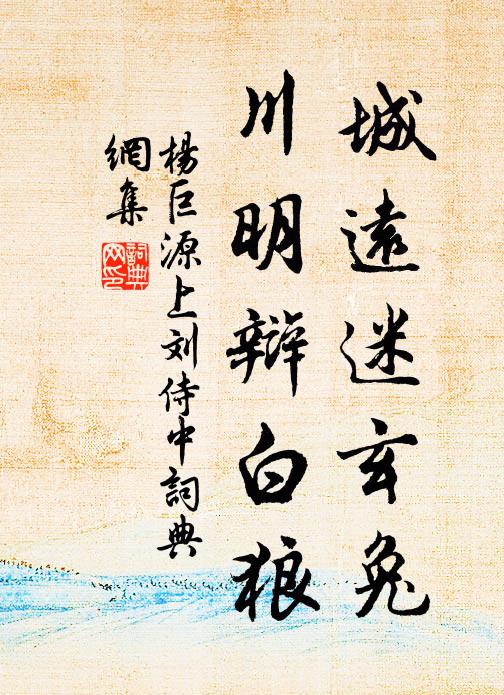 城遠迷玄兔
川明辯白狼
楊巨源上刘侍中詞典
網集
詞典
网印